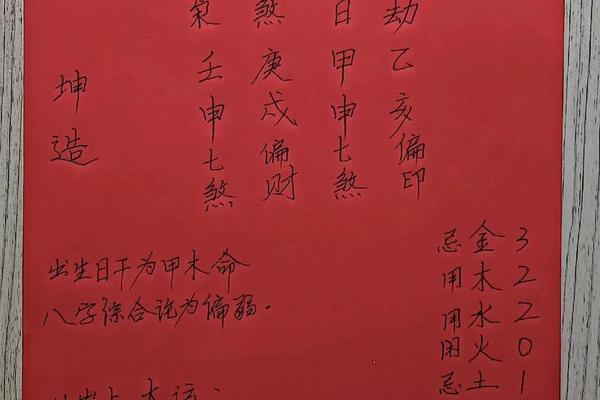 坤造
枭壬申七煞
煞庚戌偏财
日甲申七煞
劫乙亥偏印
出生日干为甲木命
八字综合论为偏弱。
忌金3
用木2
用水2
闲火0
忌土1
大运: